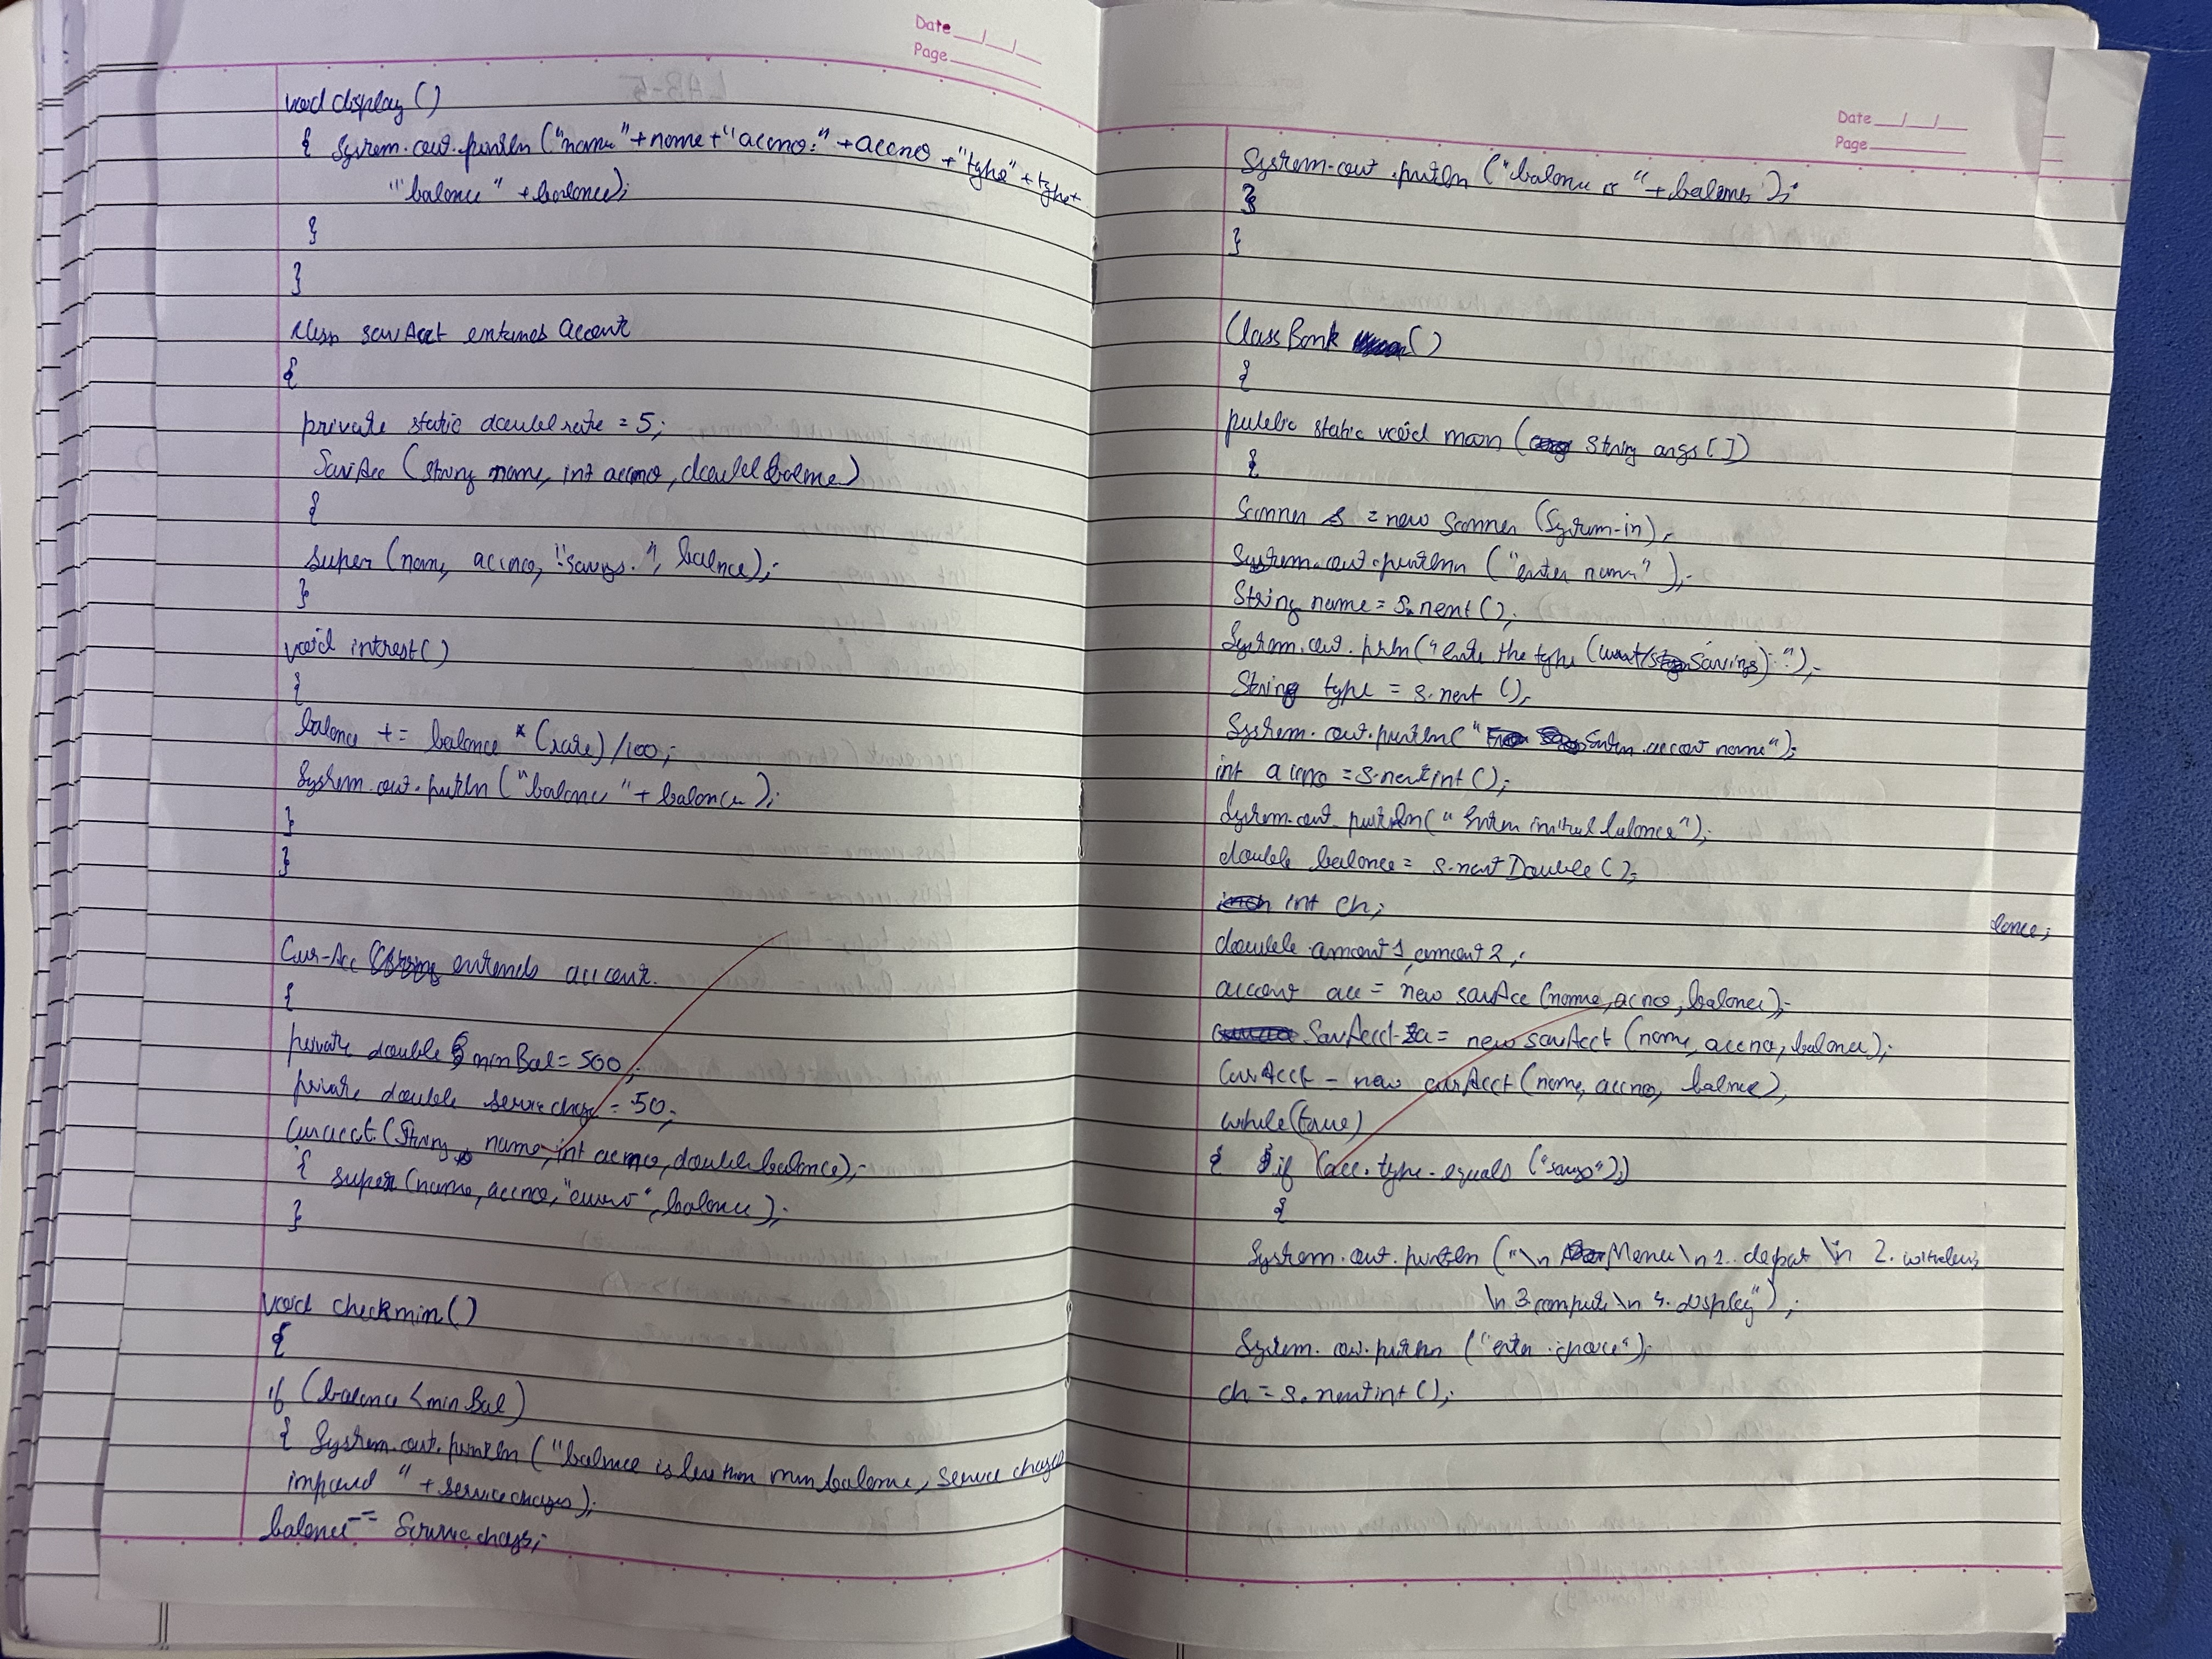 Date __/__/__
Page ____
void display()
{ System.out.println("name" + name + "accno:" + accno + "type" + type +
"balance" + balance);
}
}
class savAcct extends account
{
private static double rate = 5;
SavAcc (String name, int accno, double balance)
{
super (name, accno, "savings", balance);
}
void interest()
{
balance += balance * (rate)/100;
System.out.println("balance" + balance);
}
}
Cur-Acc extends account
{
private double minBal = 500;
private double = 50;
Curacct (String name, int accno, double balance);
{ super (name, accno, "current", balance);
}
void checkmin()
{
if (balance < minBal)
{ System.out.println ("balance is less than min balance, service charge
imposed" + servicecharges);
balance -= Servicecharge;
Date __/__/__
Page ____
System.out.println ("balance is" + balance);
}
}
Class Bank ()
{
public static void main (String args[])
{
Scanner s = new Scanner (System.in);
System.out.println ("enter name");
String name = s.next();
System.out.println ("enter the type (current/savings):");
String type = s.next();
System.out.println(" Enter account name");
int accno = s.nextint();
System.out.println("Enter initial balance");
double balance = s.nextDouble();
int ch;
double amount1, amount2;
account acc = new savAcc (name, accno, balance);
SavAcct = new savAcct (name, accno, balance);
CurAcct = new curAcct (name, accno, balance);
while(true)
{ if (acc.type.equals ("savings"))
{
System.out.println ("\n Menu \n 1. deposit \n 2. withdraw
\n 3 compute \n 4. display");
System.out.println ("enter choice");
ch = s.nextint();